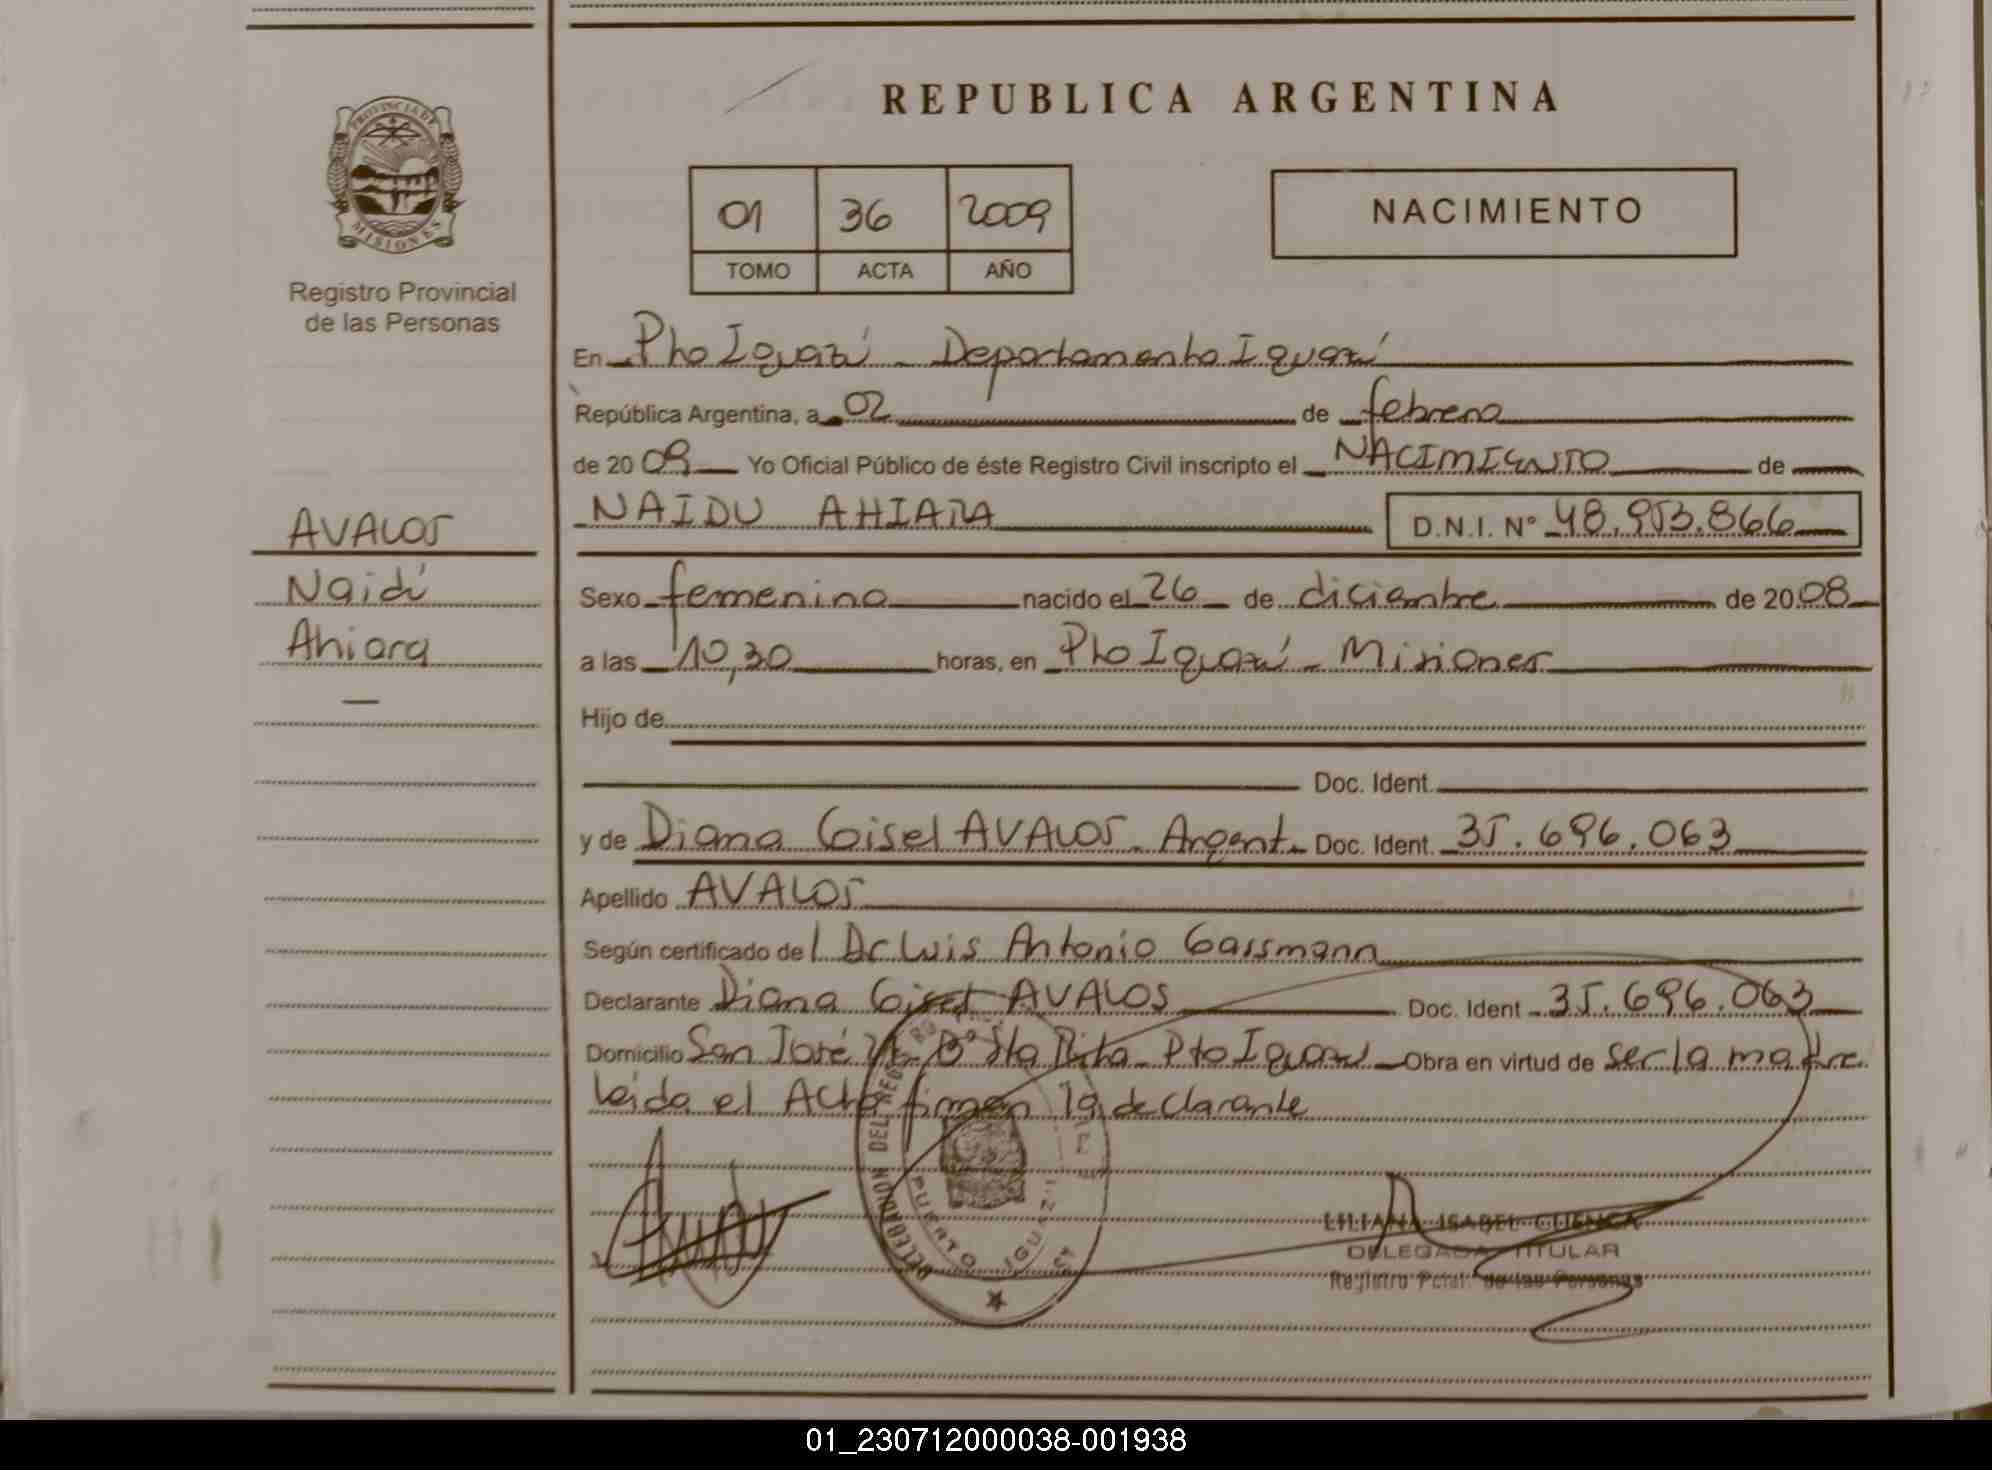 REPUBLICA ARGENTINA
PROVINCIA DE
MISIONES
Registro Provincial
de las Personas
01 36 2009
TOMO ACTA AÑO
NACIMIENTO
En Pto Iguazú - Departamento Iguazú
República Argentina, a 02 de febrero
de 2009 Yo Oficial Público de éste Registro Civil inscripto el NACIMIENTO de
NAIDU AHIARA D.N.I. Nº 48.953.866
AVALOS
Naidú
Ahiara
Sexo femenino nacido el 26 de diciembre de 2008
a las 10,30 horas, en Pto Iguazú - Misiones
Hijo de
Doc. Ident.
y de Diana Gisel AVALOS - Argent. Doc. Ident. 35.696.063
Apellido AVALOS
Según certificado del Dr Luis Antonio Gassmann
Declarante Diana Gisel AVALOS Doc. Ident 35.696.063
Domicilio San José Bº Sta Rita Pto Iguazú Obra en virtud de ser la madre
leida el Acta firman la declarante
DELEGACION DEL REG
PUERTO IGUAZU
LILIANA ISABEL CUENCA
DELEGADA TITULAR
Registro Pcial. de las Personas
01_230712000038-001938